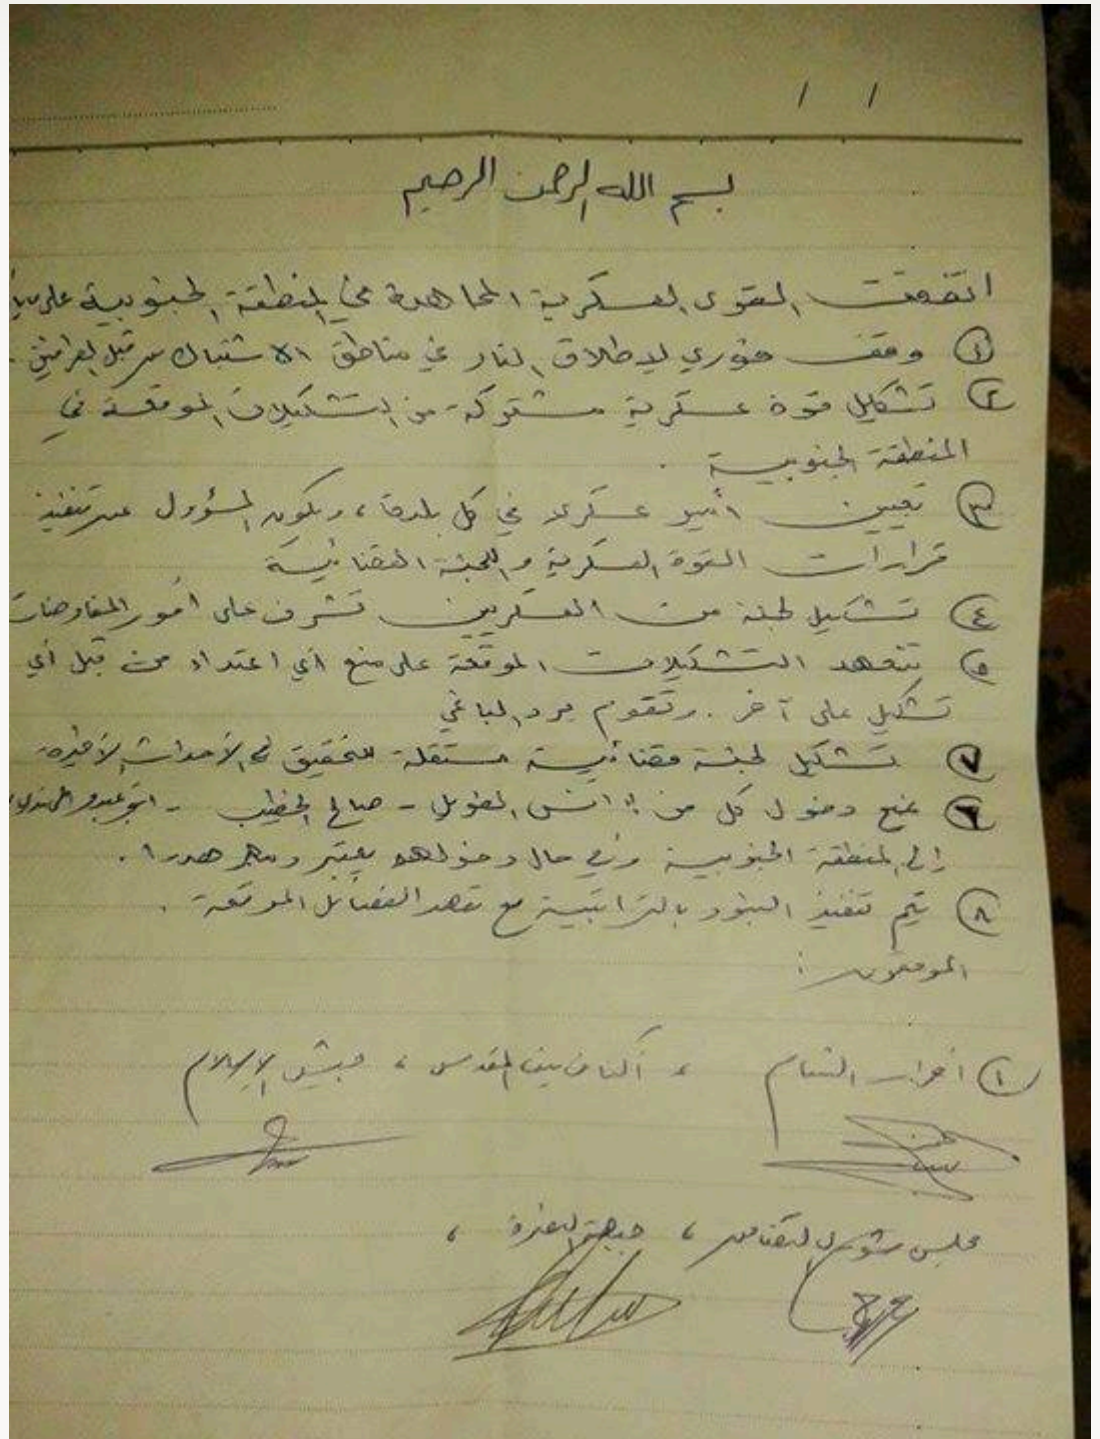 / /
بسم الله الرحمن الرحيم
اتفقت القوى العسكرية المجاهدة في المنطقة الجنوبية على
١ وقف فوري لإطلاق النار في مناطق الاشتباك من قبل الطرفين .
٢ تشكيل قوة عسكرية مشتركة من التشكيلات الموقعة في
المنطقة الجنوبية .
٣ تعيين أمير عسكري في كل بلدة ، ويكون المسؤول عن تنفيذ
قرارات القوة العسكرية واللجنة القضائية
٤ تشكيل لجنة من العسكريين تشرف على أمور المفاوضات
٥ تتعهد التشكيلات الموقعة على منع أي اعتداء من قبل أي
تشكيل على آخر . وتقوم برد الباغي
٧ تشكيل لجنة قضائية مستقلة للتحقيق في الأحداث الأخيرة
٦ منع دخول كل من : أنس الطويل - صالح الخطيب -
إلى المنطقة الجنوبية وفي حال دخولهم يعتبر دمهم هدرا .
٨ يتم تنفيذ البنود بالتراتبية مع تعهد الفصائل الموقعة .
الموقعون :
١ أحرار الشام ، أكناف بيت المقدس ، جيش الإسلام
مجلس شورى القدم ، جبهة النصرة ،